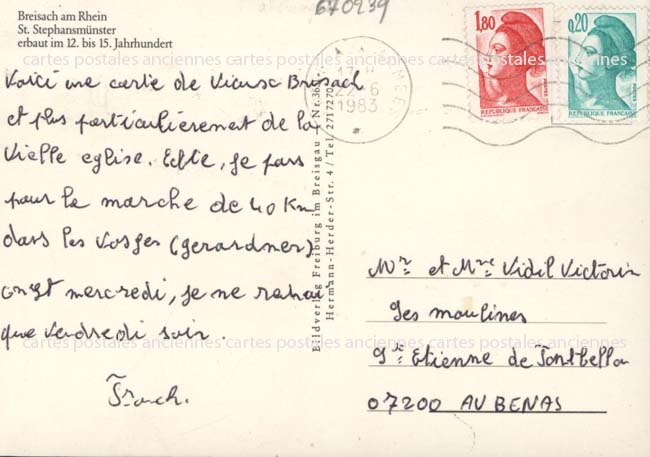 Breisach am Rhein
St. Stephansmünster
erbaut im 12. bis 15. Jahrhundert
670939
1,80
REPUBLIQUE FRANÇAISE
0,20
REPUBLIQUE FRANÇAISE
22-6
1983
cartes postales anciennes cartes postales anciennes cartes postales anciennes
Voici une carte de Vieux Brisach
et plus particulièrement de la
Vielle eglise. Edte, je pars
pour la marche de 40 Km
dans les Vosges (gerardmer)
mercredi, je ne
que Vendredi soir
Franck.
Bildverlag Freiburg im Breisgau
Hermann-Herder-Str. 4 / Tel.
Mr et Mme Vidil Victorin
Les moulines
St Etienne de Fontbellon
07200 AUBENAS
cartes postales anciennes cartes postales anciennes cartes postales anciennes